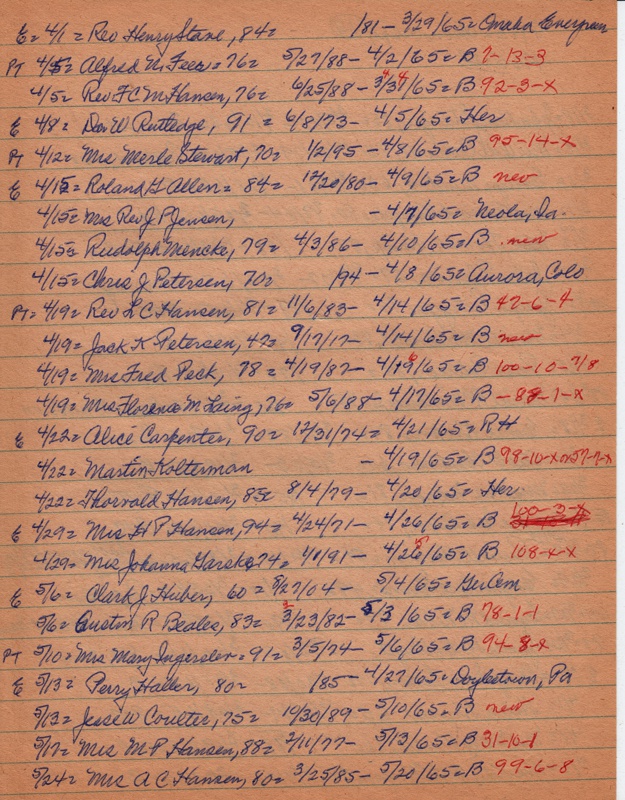 E = 4/1 = Rev Henry Stane, 84 = /81 - 3/29/65 = Omaha Evergreen
PT 4/5 = Alfred N. Fees = 76 = 5/27/88 - 4/2/65 = B 7-13-3
4/5 = Rev F C M Hansen, 76 = 6/25/88 - 3/31/65 = B 92-3-x
E 4/8 = Don W Rutledge, 91 = 6/8/73 - 4/5/65 = Her
PT 4/12 = Mrs Merle Stewart, 70 = 1/2/95 - 4/8/65 = B 95-14-x
E 4/15 = Roland G Allen = 84 = 12/20/80 - 4/9/65 = B new
4/15 = Mrs Rev J. P Jensen, - 4/7/65 = Neola, Ia.
4/15 = Rudolph Mencke, 79 = 4/3/86 - 4/10/65 = B new
4/15 = Chris J Petersen, 70 = /94 - 4/8/65 = Aurora, Colo
PT = 4/19 = Rev L C Hansen, 81 = 11/6/83 - 4/14/65 = B 47-6-4
4/19 = Jack K Petersen, 47 = 9/17/17 - 4/14/65 = B new
4/19 = Mrs Fred Peck, 78 = 4/19/87 - 4/16/65 = B 100-10-7/8
4/19 = Mrs Florence M Laing, 76 = 5/6/88 - 4/17/65 = B - 87-1-x
E 4/22 = Alice Carpenter, 90 = 12/31/74 = 4/21/65 = R H
4/22 = Martin Kolterman - 4/19/65 = B 98-10-x or 57-7-x
4/22 = Thorvald Hansen, 85 = 8/4/79 - 4/20/65 = Her
E 4/29 = Mrs H P Hansen, 94 = 4/24/71 - 4/26/65 = B 100-3-x
4/29 = Mrs Johanna 74 = 4/1/91 - 4/25/65 = B 108-x-x
E 5/6 = Clark J Huber, 60 = 5/27/04 - 5/4/65 = Ger Cem
5/6 = Austin R Beales, 83 = 2/23/82 - 5/3/65 = B 78-1-1
PT 5/10 = Mrs Mary Ingersler = 91 = 3/5/74 - 5/6/65 = B 94-8-x
E 5/13 = Perry Haller, 80 = /85 - 4/27/65 = Doylestown, Pa
5/13 = Jesse W Coulter, 75 = 10/30/89 - 5/10/65 = B new
5/17 = Mrs M P Hansen, 88 = 2/11/77 - 5/13/65 = B 31-10-1
5/24 = Mrs A C Hansen, 80 = 3/25/85 - 5/20/65 = B 99-6-8